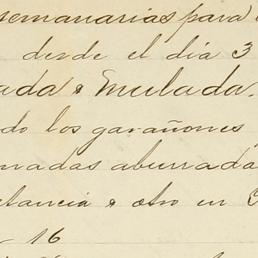 semanarias para
desde el día 3
ada e mulada.
do los garañones
madas aburrada
tancia e otro en
16